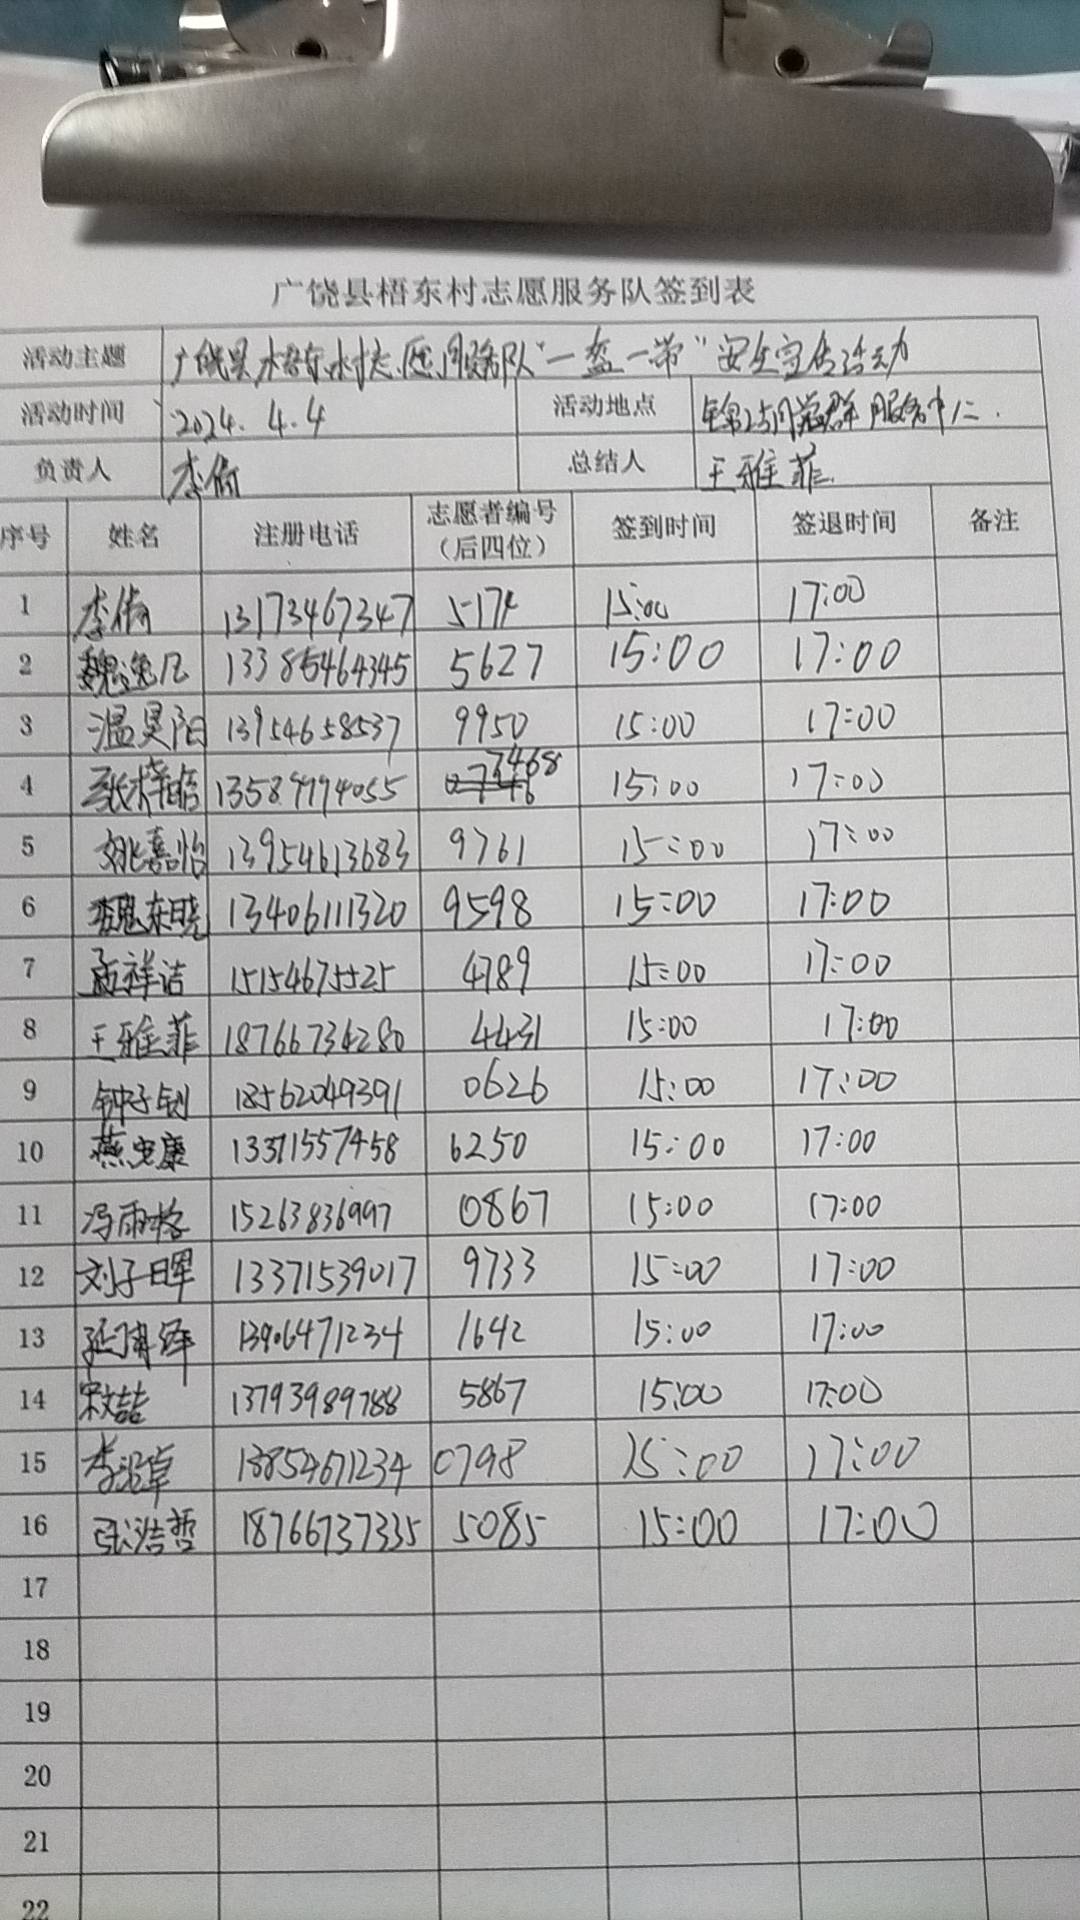 广饶县梧东村志愿服务队签到表
活动主题 广饶县梧东村志愿服务队“一盔一带”安全宣传活动
活动时间 2024.4.4 活动地点 党群服务中心.
负责人 李倩 总结人 王雅菲
序号 姓名 注册电话 志愿者编号（后四位） 签到时间 签退时间 备注
1 李倩 13173467347 5174 15:00 17:00
2 魏逸凡 13385464345 5627 15:00 17:00
3 温昊阳 13954658537 9950 15:00 17:00
4 张梓晗 13589994055 3468 15:00 17:00
5 姚嘉怡 13954613683 9761 15:00 17:00
6 魏东晓 13406111320 9598 15:00 17:00
7 孟祥洁 15154675525 4789 15:00 17:00
8 王雅菲 18766734280 4431 15:00 17:00
9 钟子钊 18562049391 0626 15:00 17:00
10 燕忠康 13371557458 6250 15:00 17:00
11 冯雨格 15263836997 0867 15:00 17:00
12 刘子晖 13371539017 9733 15:00 17:00
13 13906471234 1642 15:00 17:00
14 宋喆 13793989788 5867 15:00 17:00
15 13854671234 0798 15:00 17:00
16 张浩哲 18766737335 5085 15:00 17:00
17
18
19
20
21
22